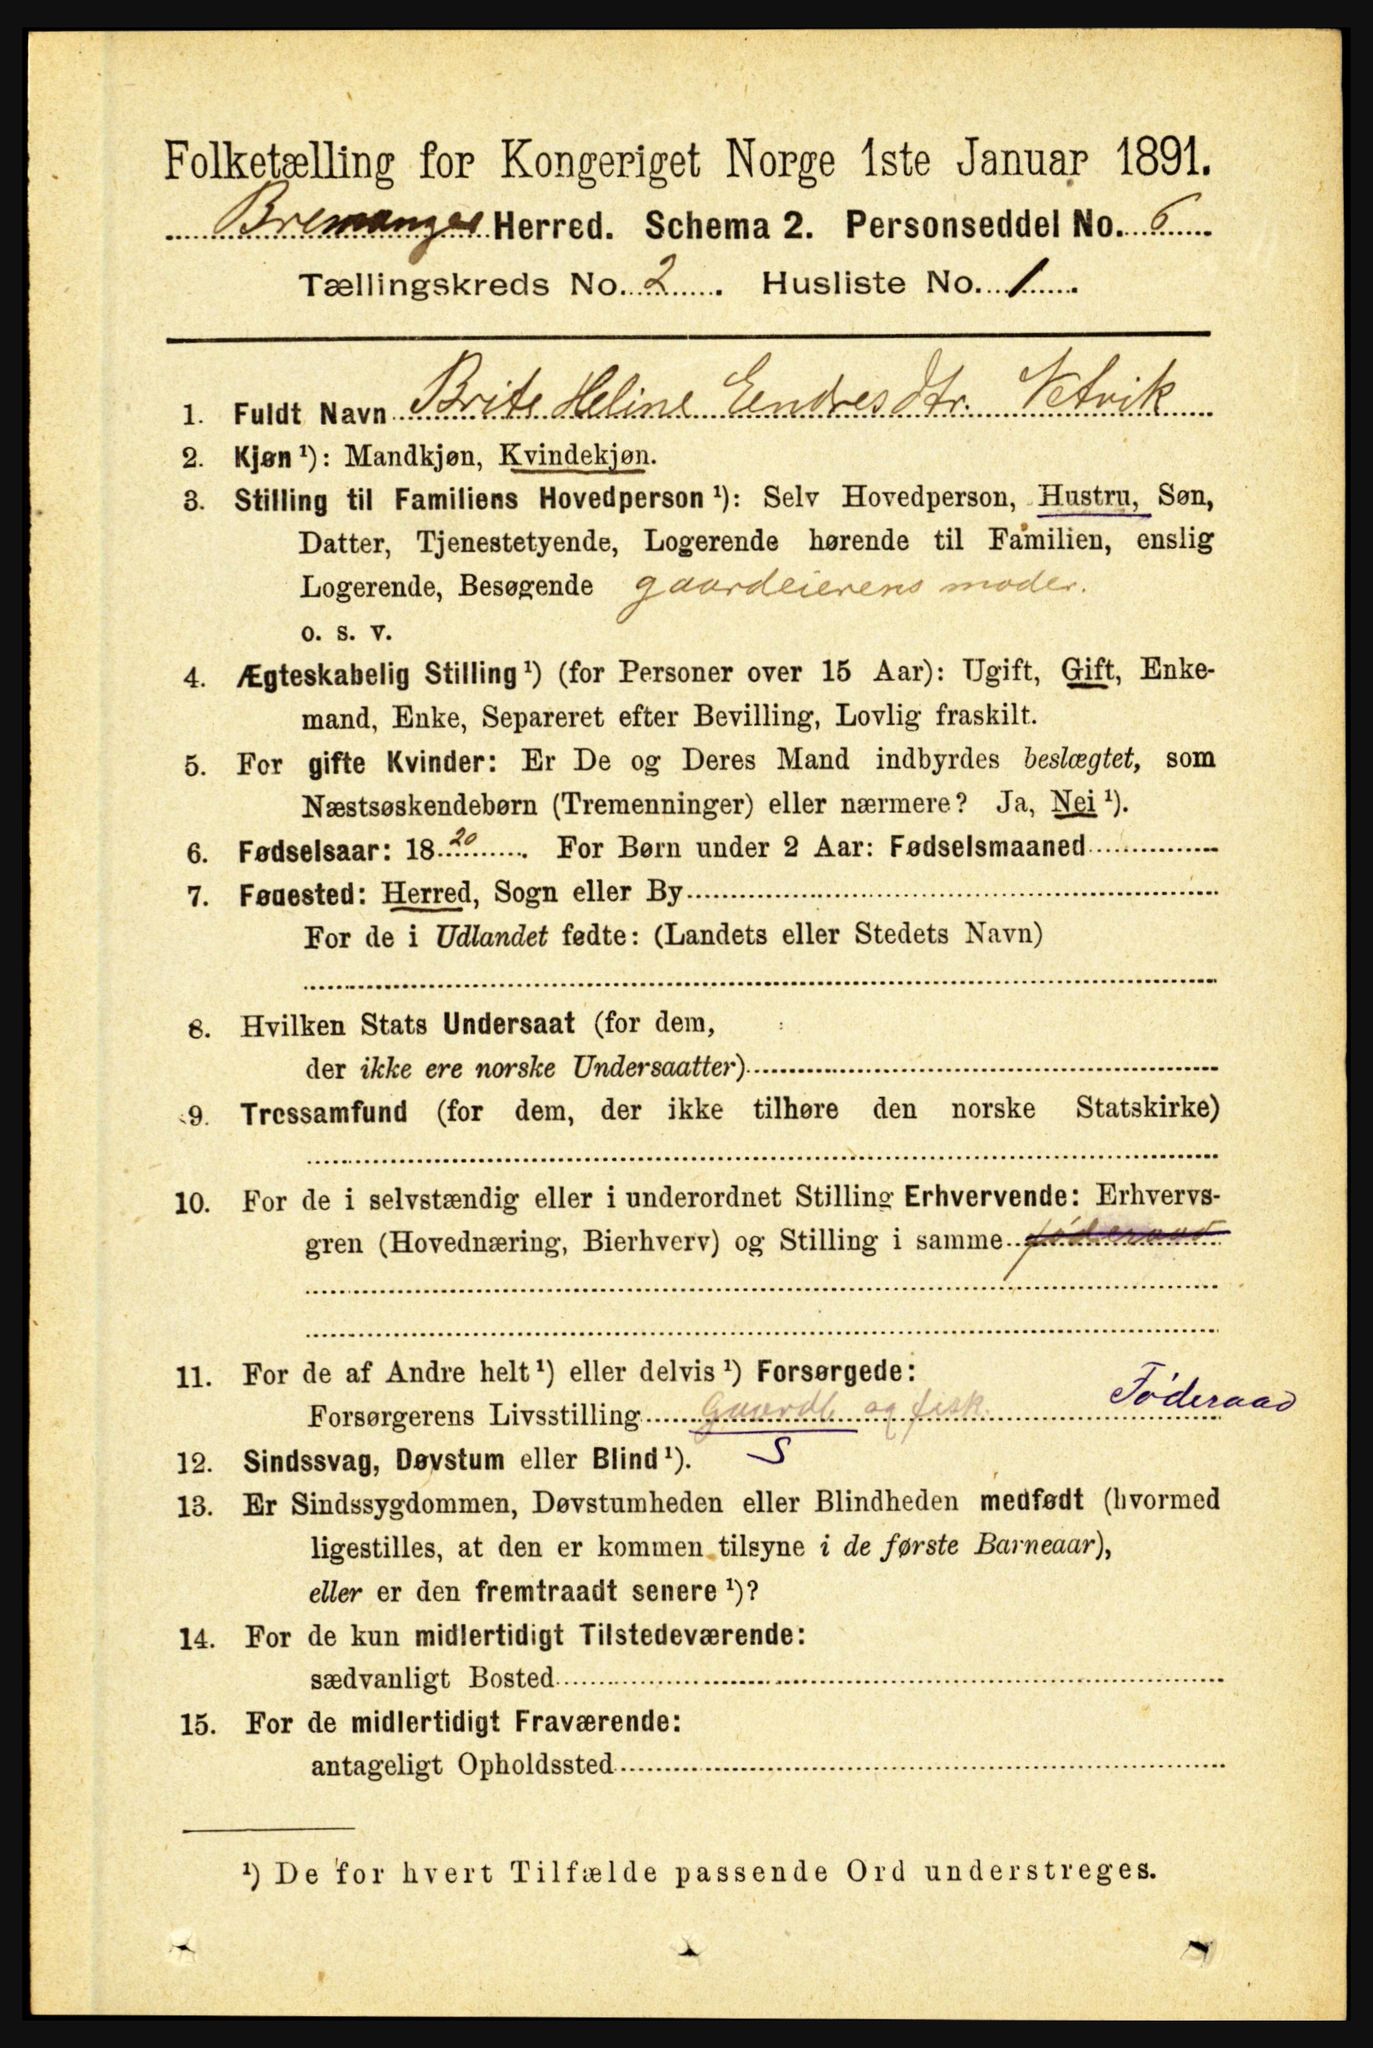 Folketælling for Kongeriget Norge 1ste Januar 1891.
Bremanger Herred. Schema 2. Personseddel No. 6
Tællingskreds No. 2. Husliste No. 1.
1. Fuldt Navn Brite Heline Eendresdtr. Vetvik
2. Kjøn ¹): Mandkjøn, Kvindekjøn.
3. Stilling til Familiens Hovedperson ¹): Selv Hovedperson, Hustru, Søn,
Datter, Tjenestetyende, Logerende hørende til Familien, enslig
Logerende, Besøgende gaardeierens moder.
o. s. v.
4. Ægteskabelig Stilling ¹) (for Personer over 15 Aar): Ugift, Gift, Enke-
mand, Enke, Separeret efter Bevilling, Lovlig fraskilt.
5. For gifte Kvinder: Er De og Deres Mand indbyrdes beslægtet, som
Næstsøskendebørn (Tremenninger) eller nærmere? Ja, Nei ¹).
6. Fødselsaar: 1820. For Børn under 2 Aar: Fødselsmaaned
7. Fødested: Herred, Sogn eller By
For de i Udlandet fødte: (Landets eller Stedets Navn)
8. Hvilken Stats Undersaat (for dem,
der ikke ere norske Undersaatter)
9. Trossamfund (for dem, der ikke tilhøre den norske Statskirke)
10. For de i selvstændig eller i underordnet Stilling Erhvervende: Erhvervs-
gren (Hovednæring, Bierhverv) og Stilling i samme føderaad
11. For de af Andre helt ¹) eller delvis ¹) Forsørgede:
Forsørgerens Livsstilling Gaardb og fisk. Føderaad
12. Sindssvag, Døvstum eller Blind ¹). S
13. Er Sindssygdommen, Døvstumheden eller Blindheden medfødt (hvormed
ligestilles, at den er kommen tilsyne i de første Barneaar),
eller er den fremtraadt senere ¹)?
14. For de kun midlertidigt Tilstedeværende:
sædvanligt Bosted
15. For de midlertidigt Fraværende:
antageligt Opholdssted
¹) De for hvert Tilfælde passende Ord understreges.